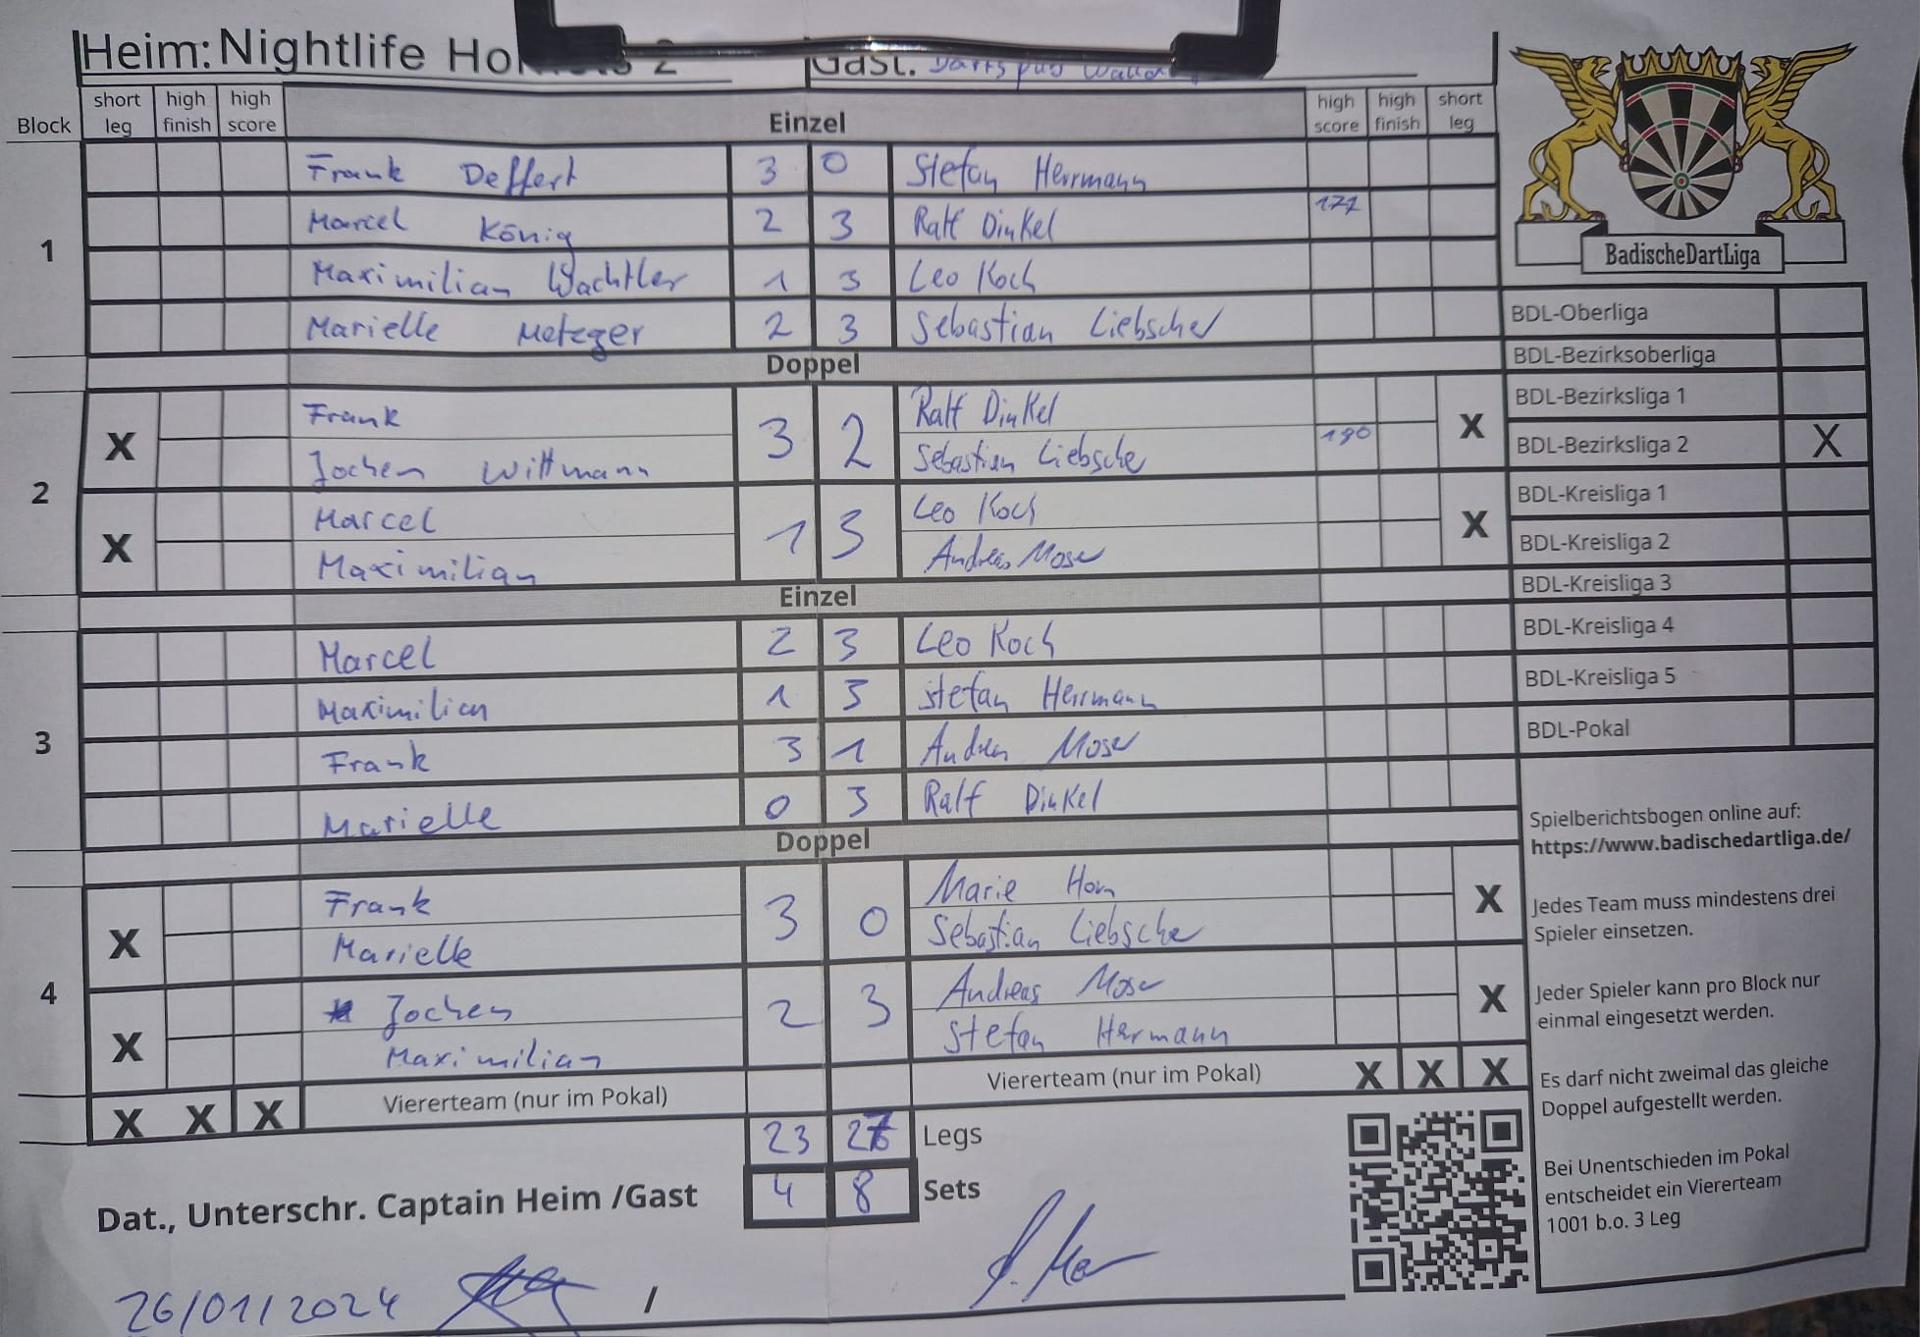 Heim: Nightlife
Gast: Dartspub
Block short leg high finish high score Einzel high score high finish short leg
1
Frank Deffert 3 0 Stefan Herrmann
Marcel König 2 3 Ralf Dinkel 177
Maximilian Wachtler 1 3 Leo Koch
Marielle Metzger 2 3 Sebastian Liebscher
Doppel
2
X Frank 3 2 Ralf Dinkel X
Jochen Wittmann Sebastian Liebscher 180
X Marcel 1 3 Leo Koch X
Maximilian Andreas Moser
Einzel
3
Marcel 2 3 Leo Koch
Maximilian 1 3 Stefan Herrmann
Frank 3 1 Andreas Moser
Marielle 0 3 Ralf Dinkel
Doppel
4
X Frank 3 0 Marie Horn X
Marielle Sebastian Liebscher
X Jochen 2 3 Andreas Moser X
Maximilian Stefan Herrmann
X X X Viererteam (nur im Pokal) Viererteam (nur im Pokal) X X X
23 Legs
4 8 Sets
Dat., Unterschr. Captain Heim /Gast
26/01/2024 /
BadischeDartLiga
BDL-Oberliga
BDL-Bezirksoberliga
BDL-Bezirksliga 1
BDL-Bezirksliga 2 X
BDL-Kreisliga 1
BDL-Kreisliga 2
BDL-Kreisliga 3
BDL-Kreisliga 4
BDL-Kreisliga 5
BDL-Pokal
Spielberichtsbogen online auf:
https://www.badischedartliga.de/
Jedes Team muss mindestens drei
Spieler einsetzen.
Jeder Spieler kann pro Block nur
einmal eingesetzt werden.
Es darf nicht zweimal das gleiche
Doppel aufgestellt werden.
Bei Unentschieden im Pokal
entscheidet ein Viererteam
1001 b.o. 3 Leg